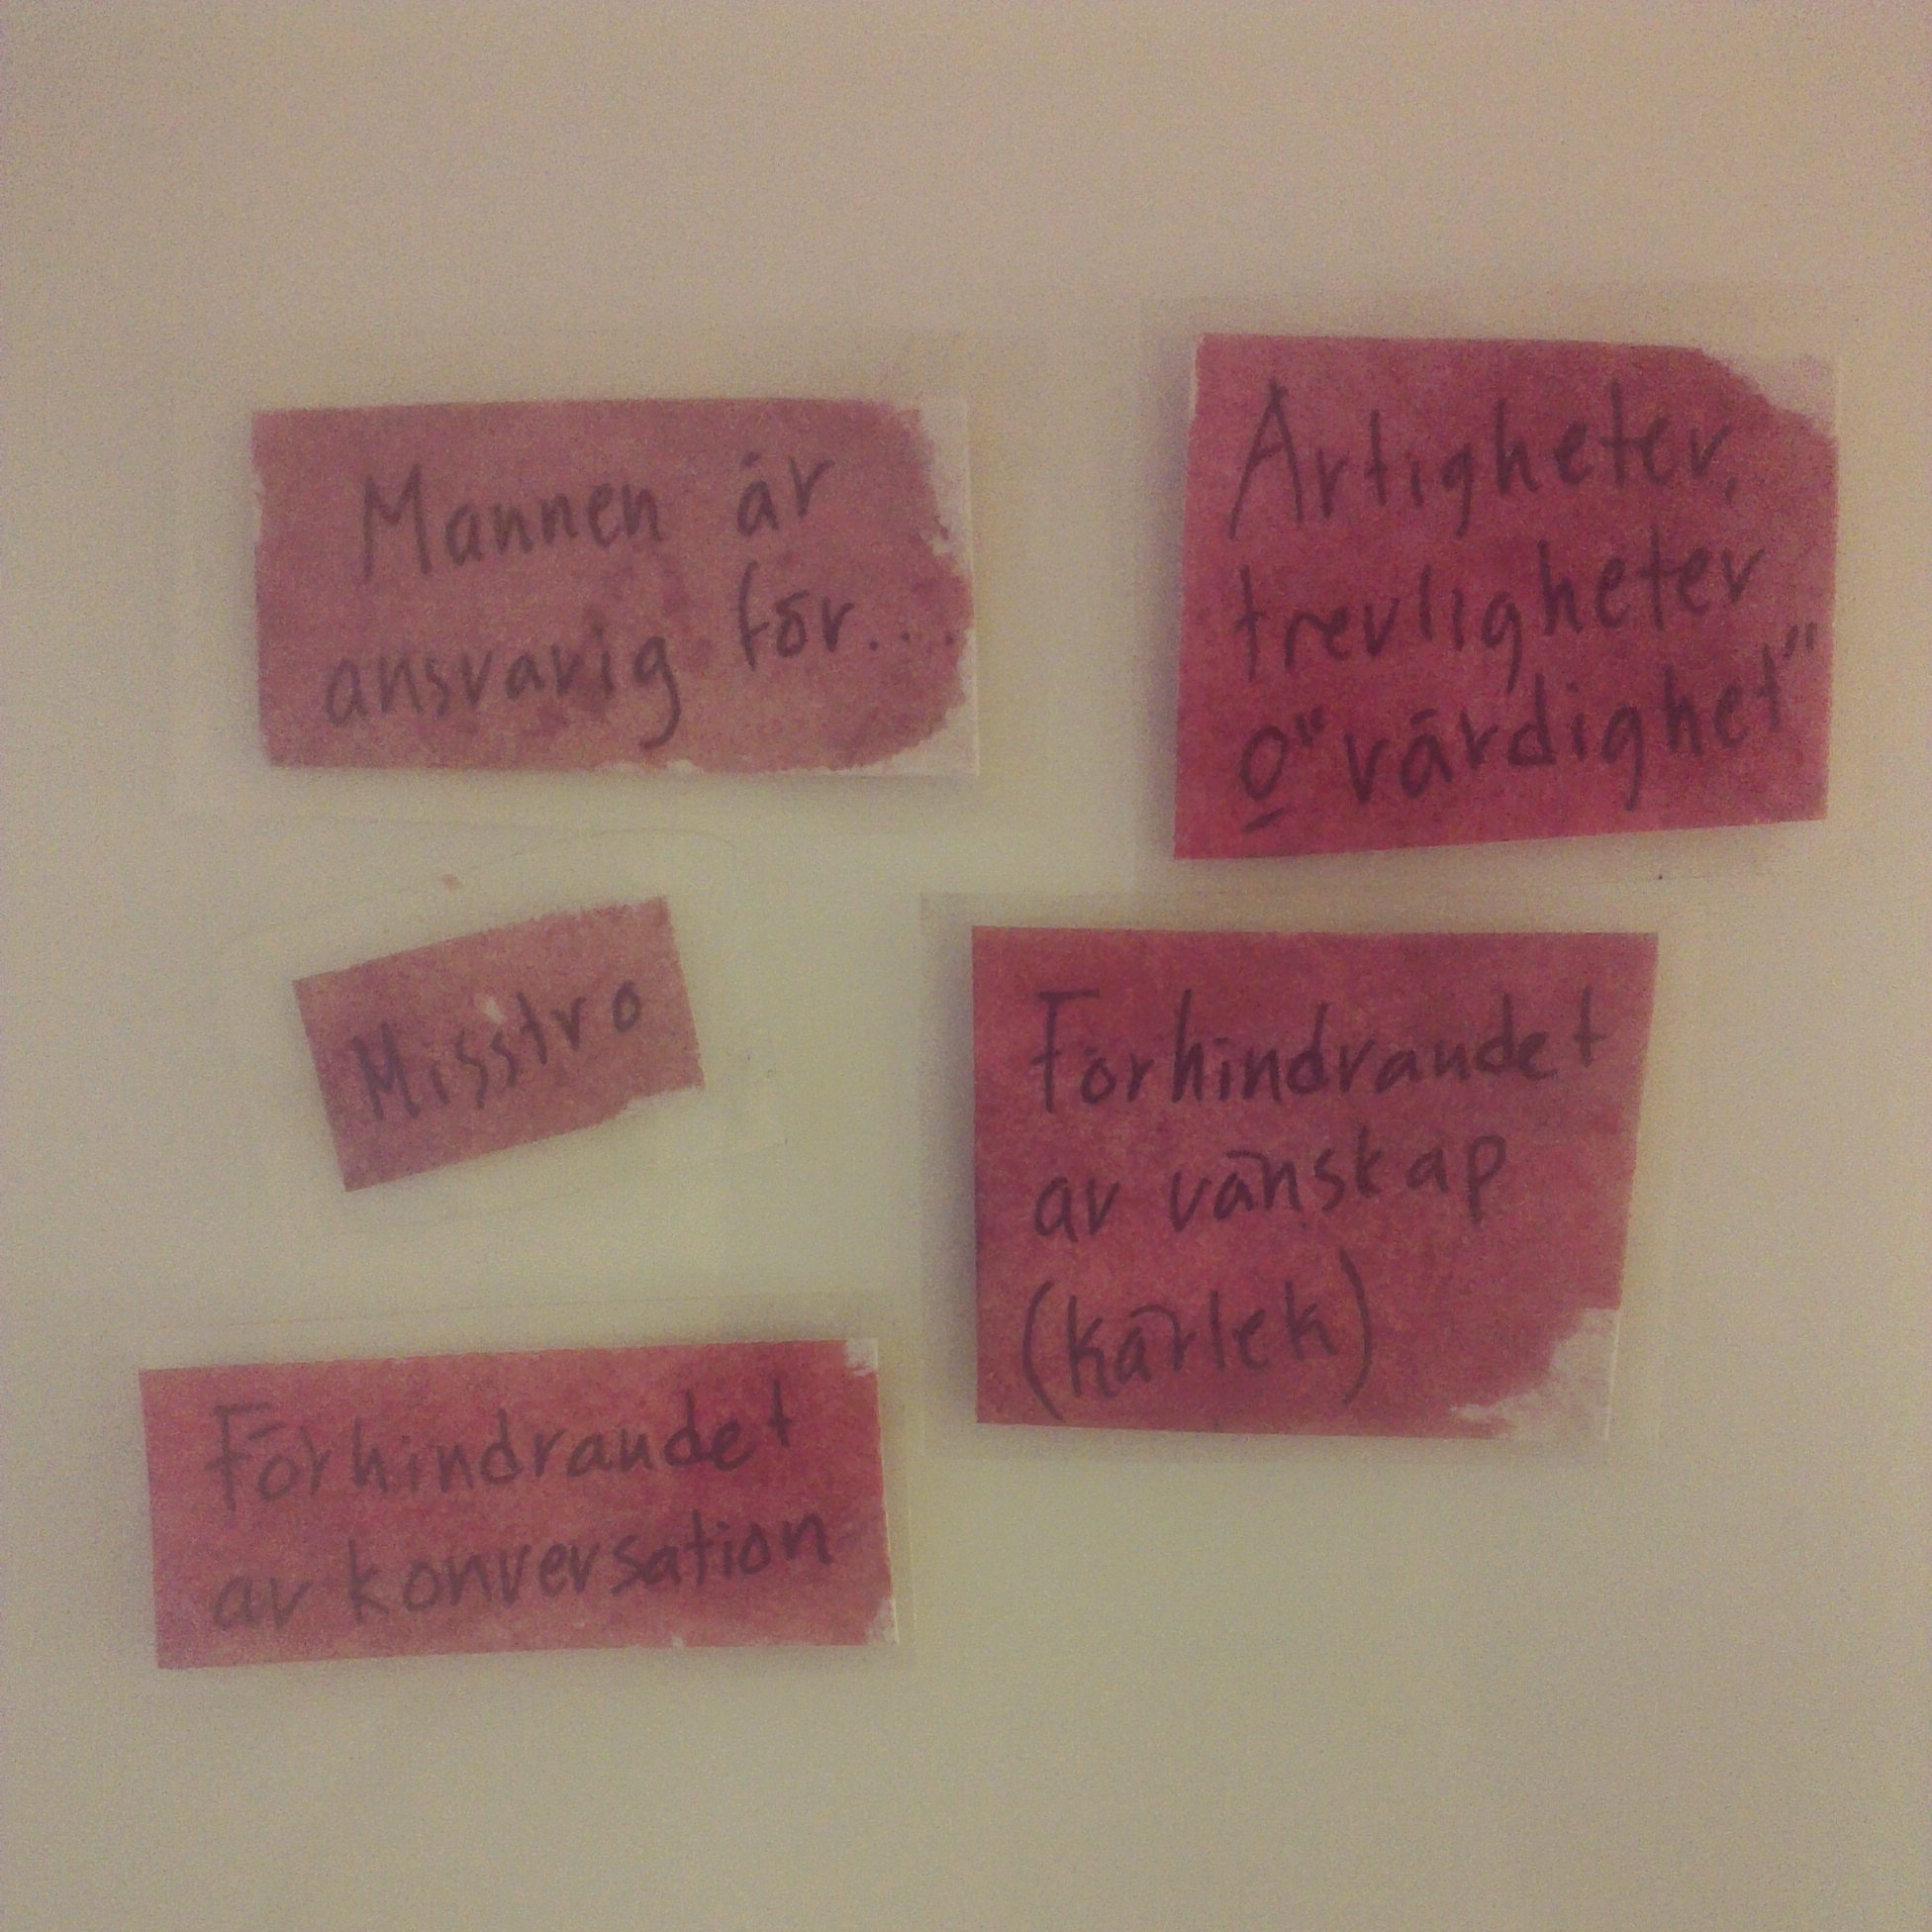 Mannen är
ansvarig för....
Artigheter,
trevligheter
o "värdighet"
Misstro
Förhindrandet
av vänskap
(kärlek)
Förhindrandet
av konversation